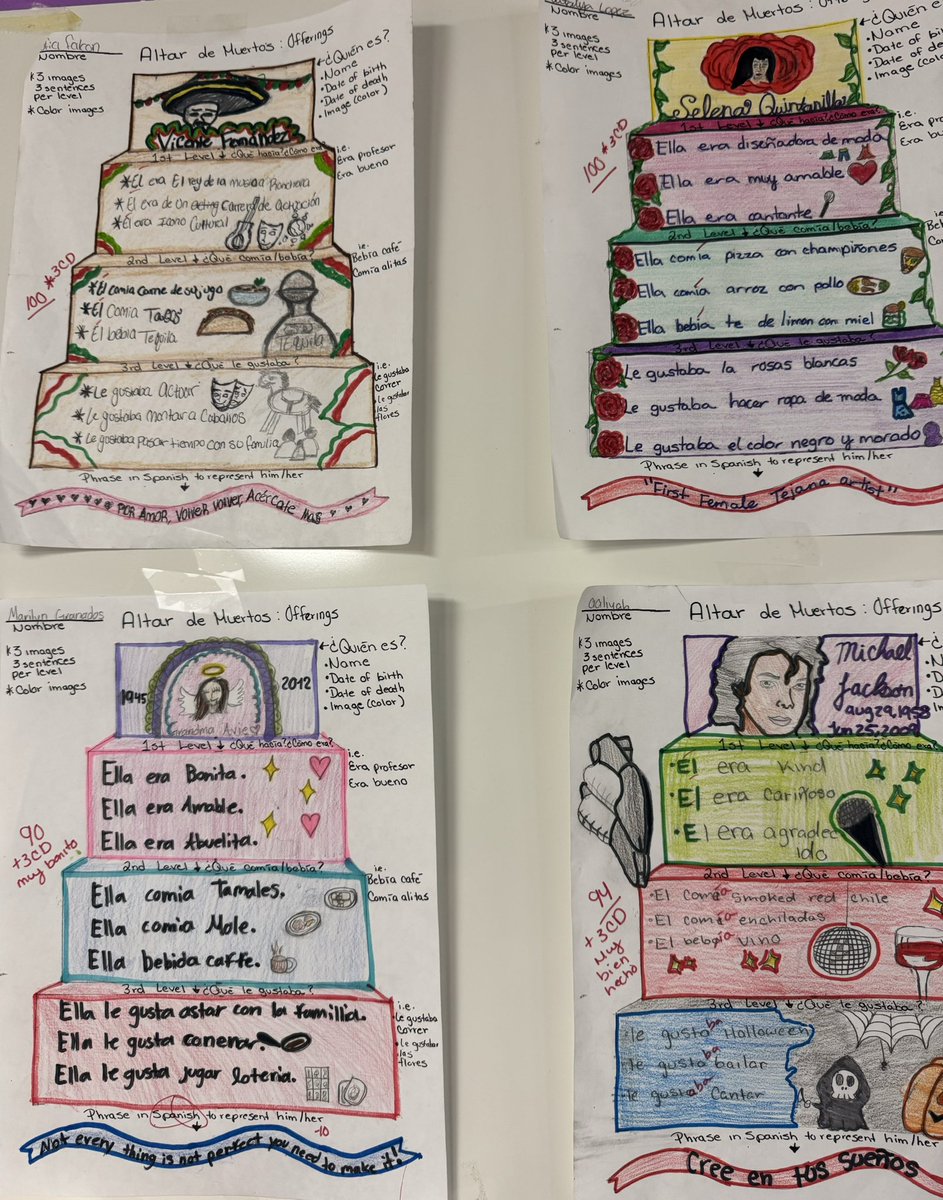 Nombre
Altar de Muertos: Offerings
*3 images
3 sentences
per level
*Color images
←¿Quién es?
•Name
•Date of birth
•Date of death
•Image (color)
Vicente Fernández
1st Level ↓ ¿Qué hacía? ¿Cómo era?
i.e.
Era profesor
Era bueno
*El era El rey de la musica Ranchera
*El era de un Carrera de Actuación
*El era Icono Cultural
100 *3CD
2nd Level ↓ ¿Qué comía/bebía?
i.e.
Bebía café
Comía alitas
*El comia carne de su jugo
*Él Comia Tacos
*Él bebia Tequila
TEquila
3rd Level ↓ ¿Qué le gustaba?
i.e.
Le gustaba
correr
Le gustaban
las
flores
*Le gustaba Actuar
*Le gustaba montar a Caballos
*Le gustaba Pasar tiempo con su familia
Phrase in Spanish to represent him/her
POR AMOR, VOlVER VOlVER, Acércate Mas
Lopez
Nombre
Altar de Muertos:
*3 images
3 sentences
per level
*Color images
←¿Quién es?
•Name
•Date of birth
•Date of
•Image (color)
Selena Quintanilla
1st Level ↓ ¿Qué hacía? ¿Cómo era?
i.e.
Era
Era
Ella era diseñadora de moda
Ella era muy amable
Ella era cantante
100 *3CD
2nd Level ↓ ¿Qué comía/bebía?
i.e.
Ella comía pizza con champiñones
Ella comía arroz con pollo
Ella bebía te de limon con miel
3rd Level ↓ ¿Qué le gustaba?
Le gustaba la rosas blancas
Le gustaba hacer ropa de moda
Le gustaba el color negro y morado
Phrase in Spanish to represent him/her
"First Female Tejana artist"
Marilyn Granados
Nombre
Altar de Muertos: Offerings
*3 images
3 sentences
per level
*Color images
←¿Quién es?
•Name
•Date of birth
•Date of death
•Image (color)
1945
2012
Grandma Avie
1st Level ↓ ¿Qué hacía? ¿Cómo era?
i.e.
Era profesor
Era bueno
Ella era Bonita.
Ella era Amable.
Ella era Abuelita.
90
+3CD
muy bonito
2nd Level ↓ ¿Qué comía/bebía?
i.e.
Bebía café
Comía alitas
Ella comia Tamales.
Ella comia Mole.
Ella bebida caffe.
3rd Level ↓ ¿Qué le gustaba?
i.e.
•Le gustaba
correr
•Le gustaban
las
flores
Ella le gusta astar con la familia.
Ella le gusta conenar.
Ella le gusta jugar loteria.
Phrase in Spanish to represent him/her
-10
Not every thing is not perfect you need to make it!
aaliyah
Nombre
Altar de Muertos: Offerings
*3 images
3 sentences
per level
*Color images
←¿Quién es?
Michael
Jackson
aug 29, 1958
Jun 25, 2009
1st Level ↓ ¿Qué hacía? ¿Cómo era?
•Él era Kind
•El era cariñoso
•El era agradec
ido
94
+3CD
Muy
bien
hecho
2nd Level ↓ ¿Qué comía/bebía?
•El comía smoked red chile
•El comía enchiladas
•El bebía vino
3rd Level ↓ ¿Qué le gustaba?
•le gustaba Halloween
•le gustaba bailar
•le gustaba Cantar
Phrase in Spanish to represent him/her
Cree en tus sueños